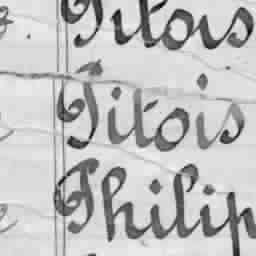 Titois
Titois
Philip